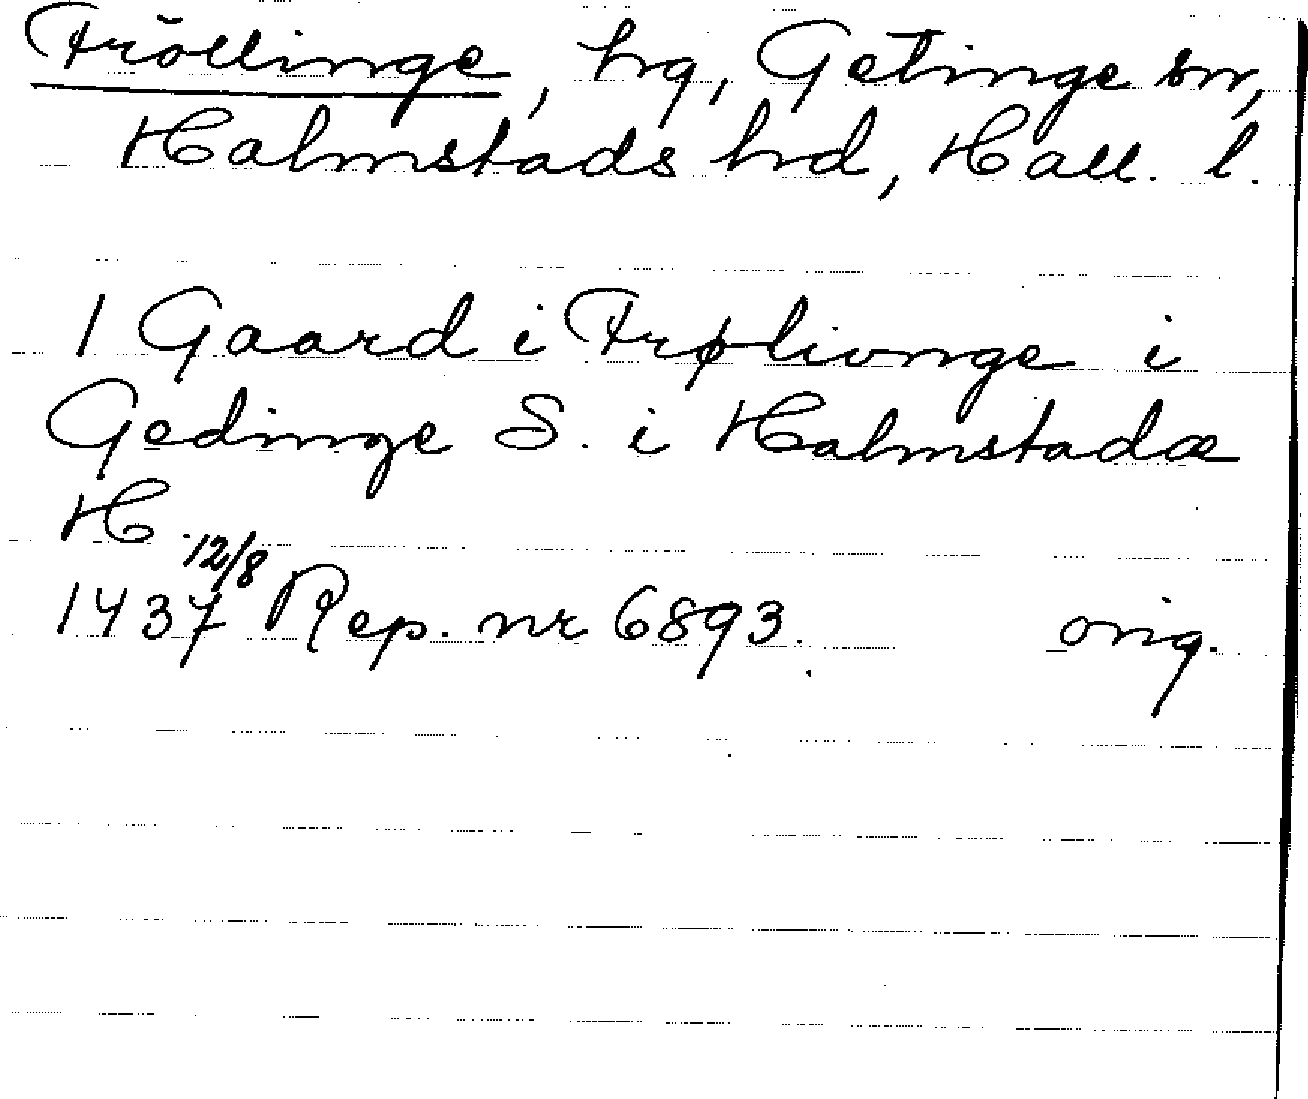 Fröllinge, hg, Getinge sn,
Halmstads hrd, Hall. l.
1 Gaard i Frøliunge i
Gedinge S. i Halmstadæ
H.
1437 12/8 Rep. nr 6893. orig.